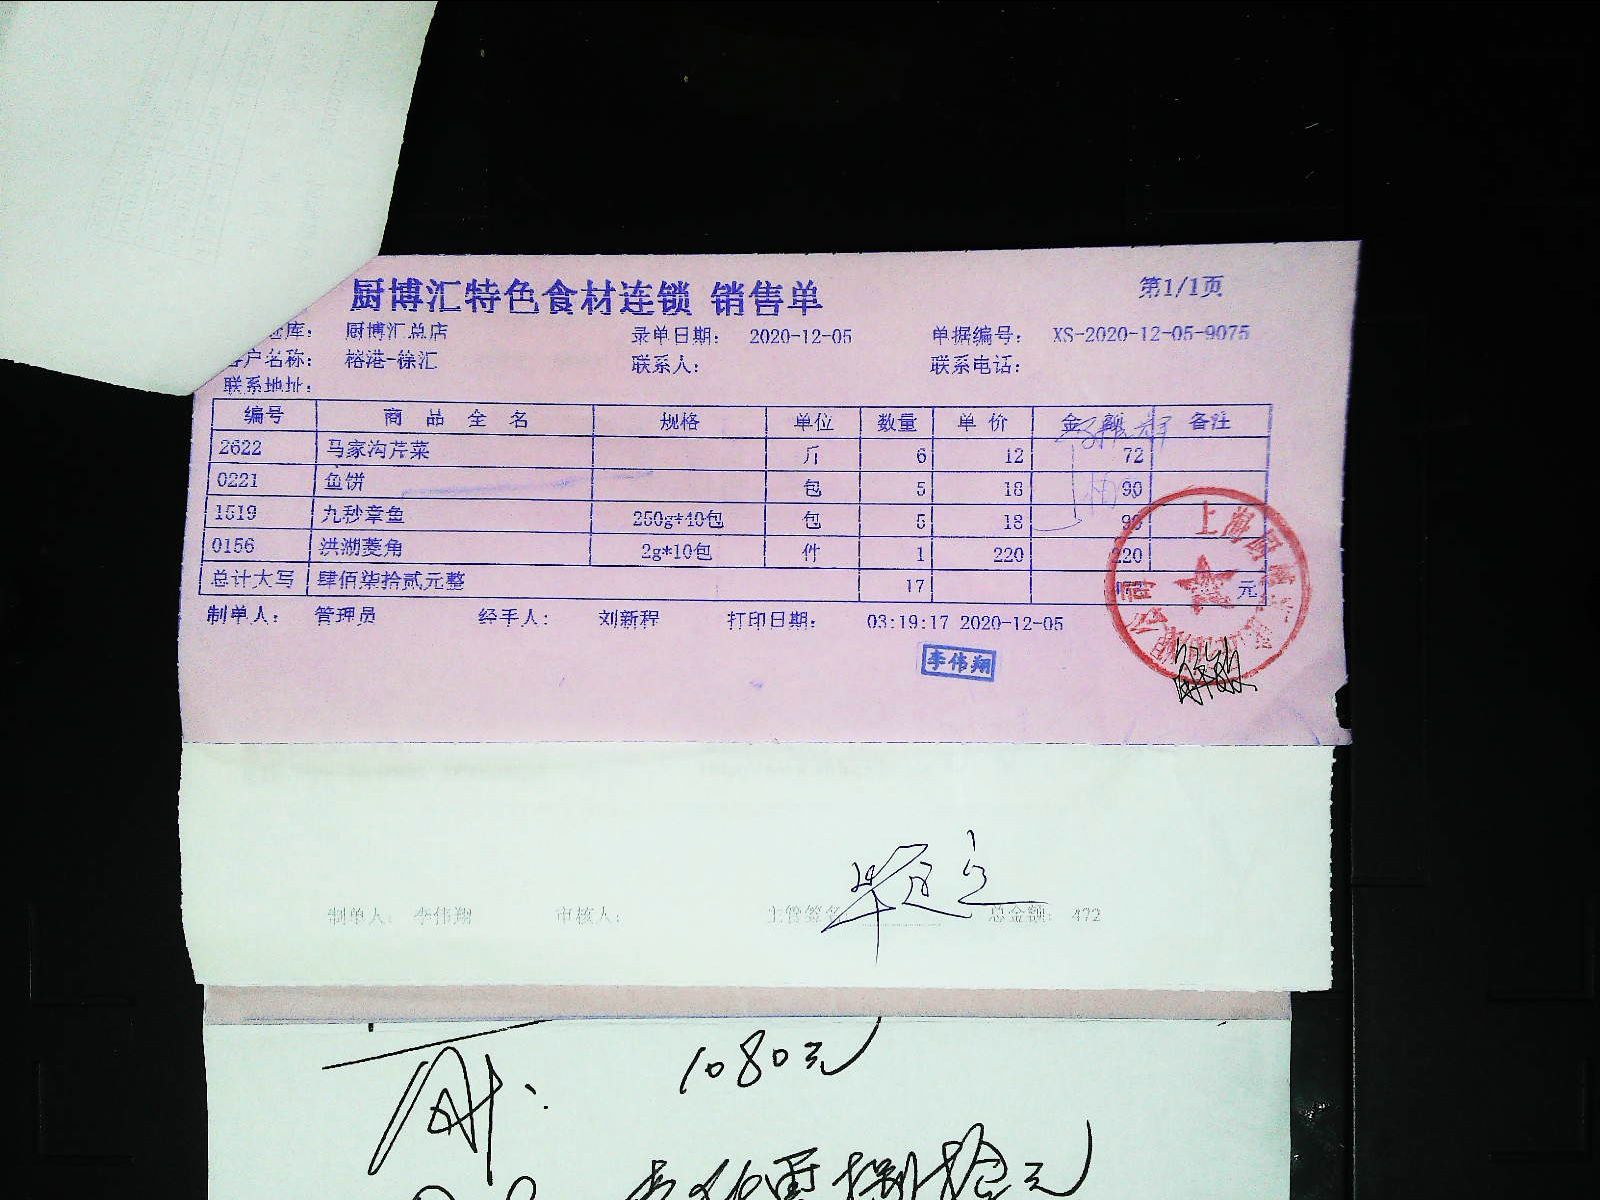 厨博汇特色食材连锁 销售单 第1/1页
库： 厨博汇总店 录单日期： 2020-12-05 单据编号： XS-2020-12-05-9075
客户名称： 榕港-徐汇 联系人： 联系电话：
联系地址：
编号 商 品 全 名 规格 单位 数量 单 价 金额 备注
2622 马家沟芹菜 斤 6 12 72
0221 鱼饼 包 5 18 90
1519 九秒章鱼 250g*40包 包 5 18 90
0156 洪湖菱角 2g*10包 件 1 220 220
总计大写 肆佰柒拾贰元整 17 472 元
制单人： 管理员 经手人： 刘新程 打印日期： 03:19:17 2020-12-05
李伟翔
上海厨
公司
制单人： 李伟翔 审核人： 主管签名 总金额： 472
1080元